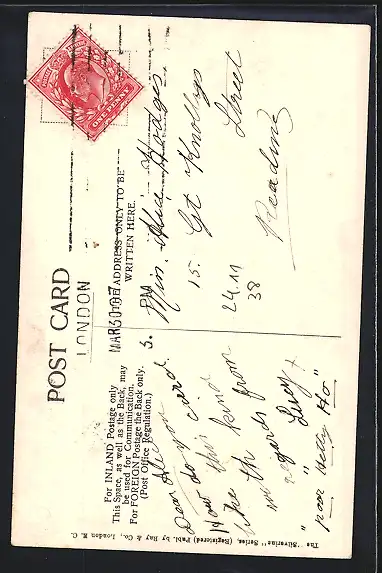 POST CARD
For INLAND Postage only
This Space, as well as the Back, may
be used for Communication.
For FOREIGN Postage the Back only.
(Post Office Regulation.)
THE ADDRESS ONLY TO BE
WRITTEN HERE.
ONE PENNY
LONDON
MAR 30 07
5. PM
Dear Alice
How do you
like this kind card.
with regards from
Lucy x
"poor Nelly Ho"
Miss. Alice Hodges
15. Gt Knollys
Street
Reading
24.11
38
The "Silvarine" Series, (Registered) Publ. by Ray & Co., London E. C.